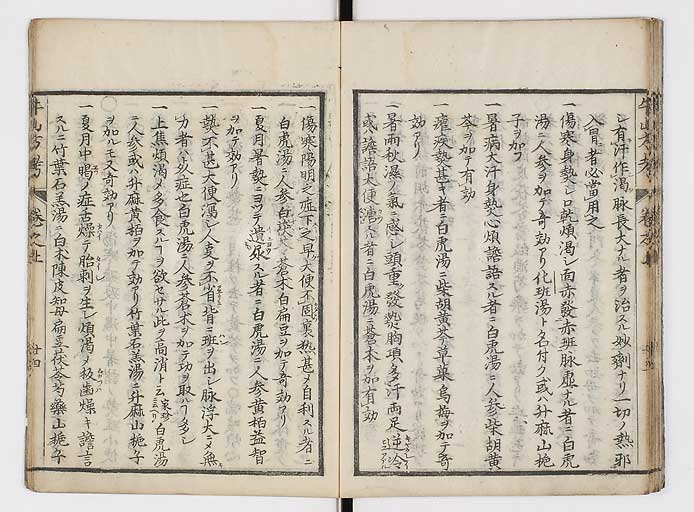 シ有汗作渇脉長大ナル者ヲ治スル妙劑ナリ一切ノ熱邪
入胃者必當用之
一傷寒身熱シ口乾煩渇シ面赤發赤班脉虚ナル者ニ白虎
湯ニ人参ヲ加テ奇効アリ化班湯ト名付ク或ハ升麻山梔
子ヲ加フ
一暑病大汗身熱心煩譫語スル者ニ白虎湯ニ人参柴胡黄
芩ヲ加テ有効
一瘧疾熱甚キ者ニ白虎湯ニ柴胡黄芩草菓烏梅ヲ加テ奇
効アリ
一暑雨秋瀑ノ氣ニ感シ頭重ク發熱胸項多汗両足逆冷
或譫語大便溏スル者ニ白虎湯ニ蒼朮ヲ加有効
一傷寒陽明之症下之早大便不固裏熱甚メ自利スル者ニ
白虎湯ニ人参白茯苓蒼朮白扁豆ヲ加テ奇効アリ
一夏月暑熱ニヨツテ遺尿スル者ニ白虎湯ニ人参黄柏益智
ヲ加テ効アリ
一熱不甚大便瀉シ人支ヲ不省皆ニ班ヲ出シ脉浮大ニメ無
力者ハ亥症也白虎湯ニ人参蒼朮ヲ加テ功ヲ取ルフ多シ
一上焦煩渇メ多ク食スルフヲ欲セサル此ヲ尚消ト云 白虎湯
ニ人参或ハ升麻黄柏ヲ加テ効アリ竹葉石羔湯ニ升麻山梔子
ヲ加ルモ又奇効アリ
一夏月中暍ノ症舌燥テ胎刺ヲ生シ煩渇メ殺歯燥キ譫言
スルニ竹葉石羔湯ニ白朮陳皮知母扁豆茯苓芍藥山梔子